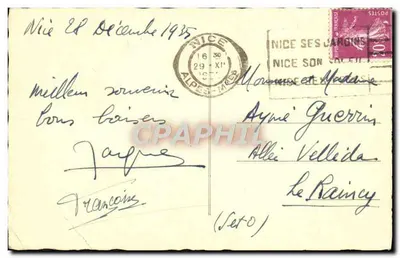 Nice 28 Décembre 1935
meilleurs souvenirs
bons baisers
Jacques
Françoise
NICE
16 30
29 XII
ALPES-MMES
NICE SES JARDINS
NICE SON SOLEIL
NICE
POSTES
Monsieur et Madame
Aymé Guerrin
Allée Velléda
le Raincy
(S et O)
CPARAMA